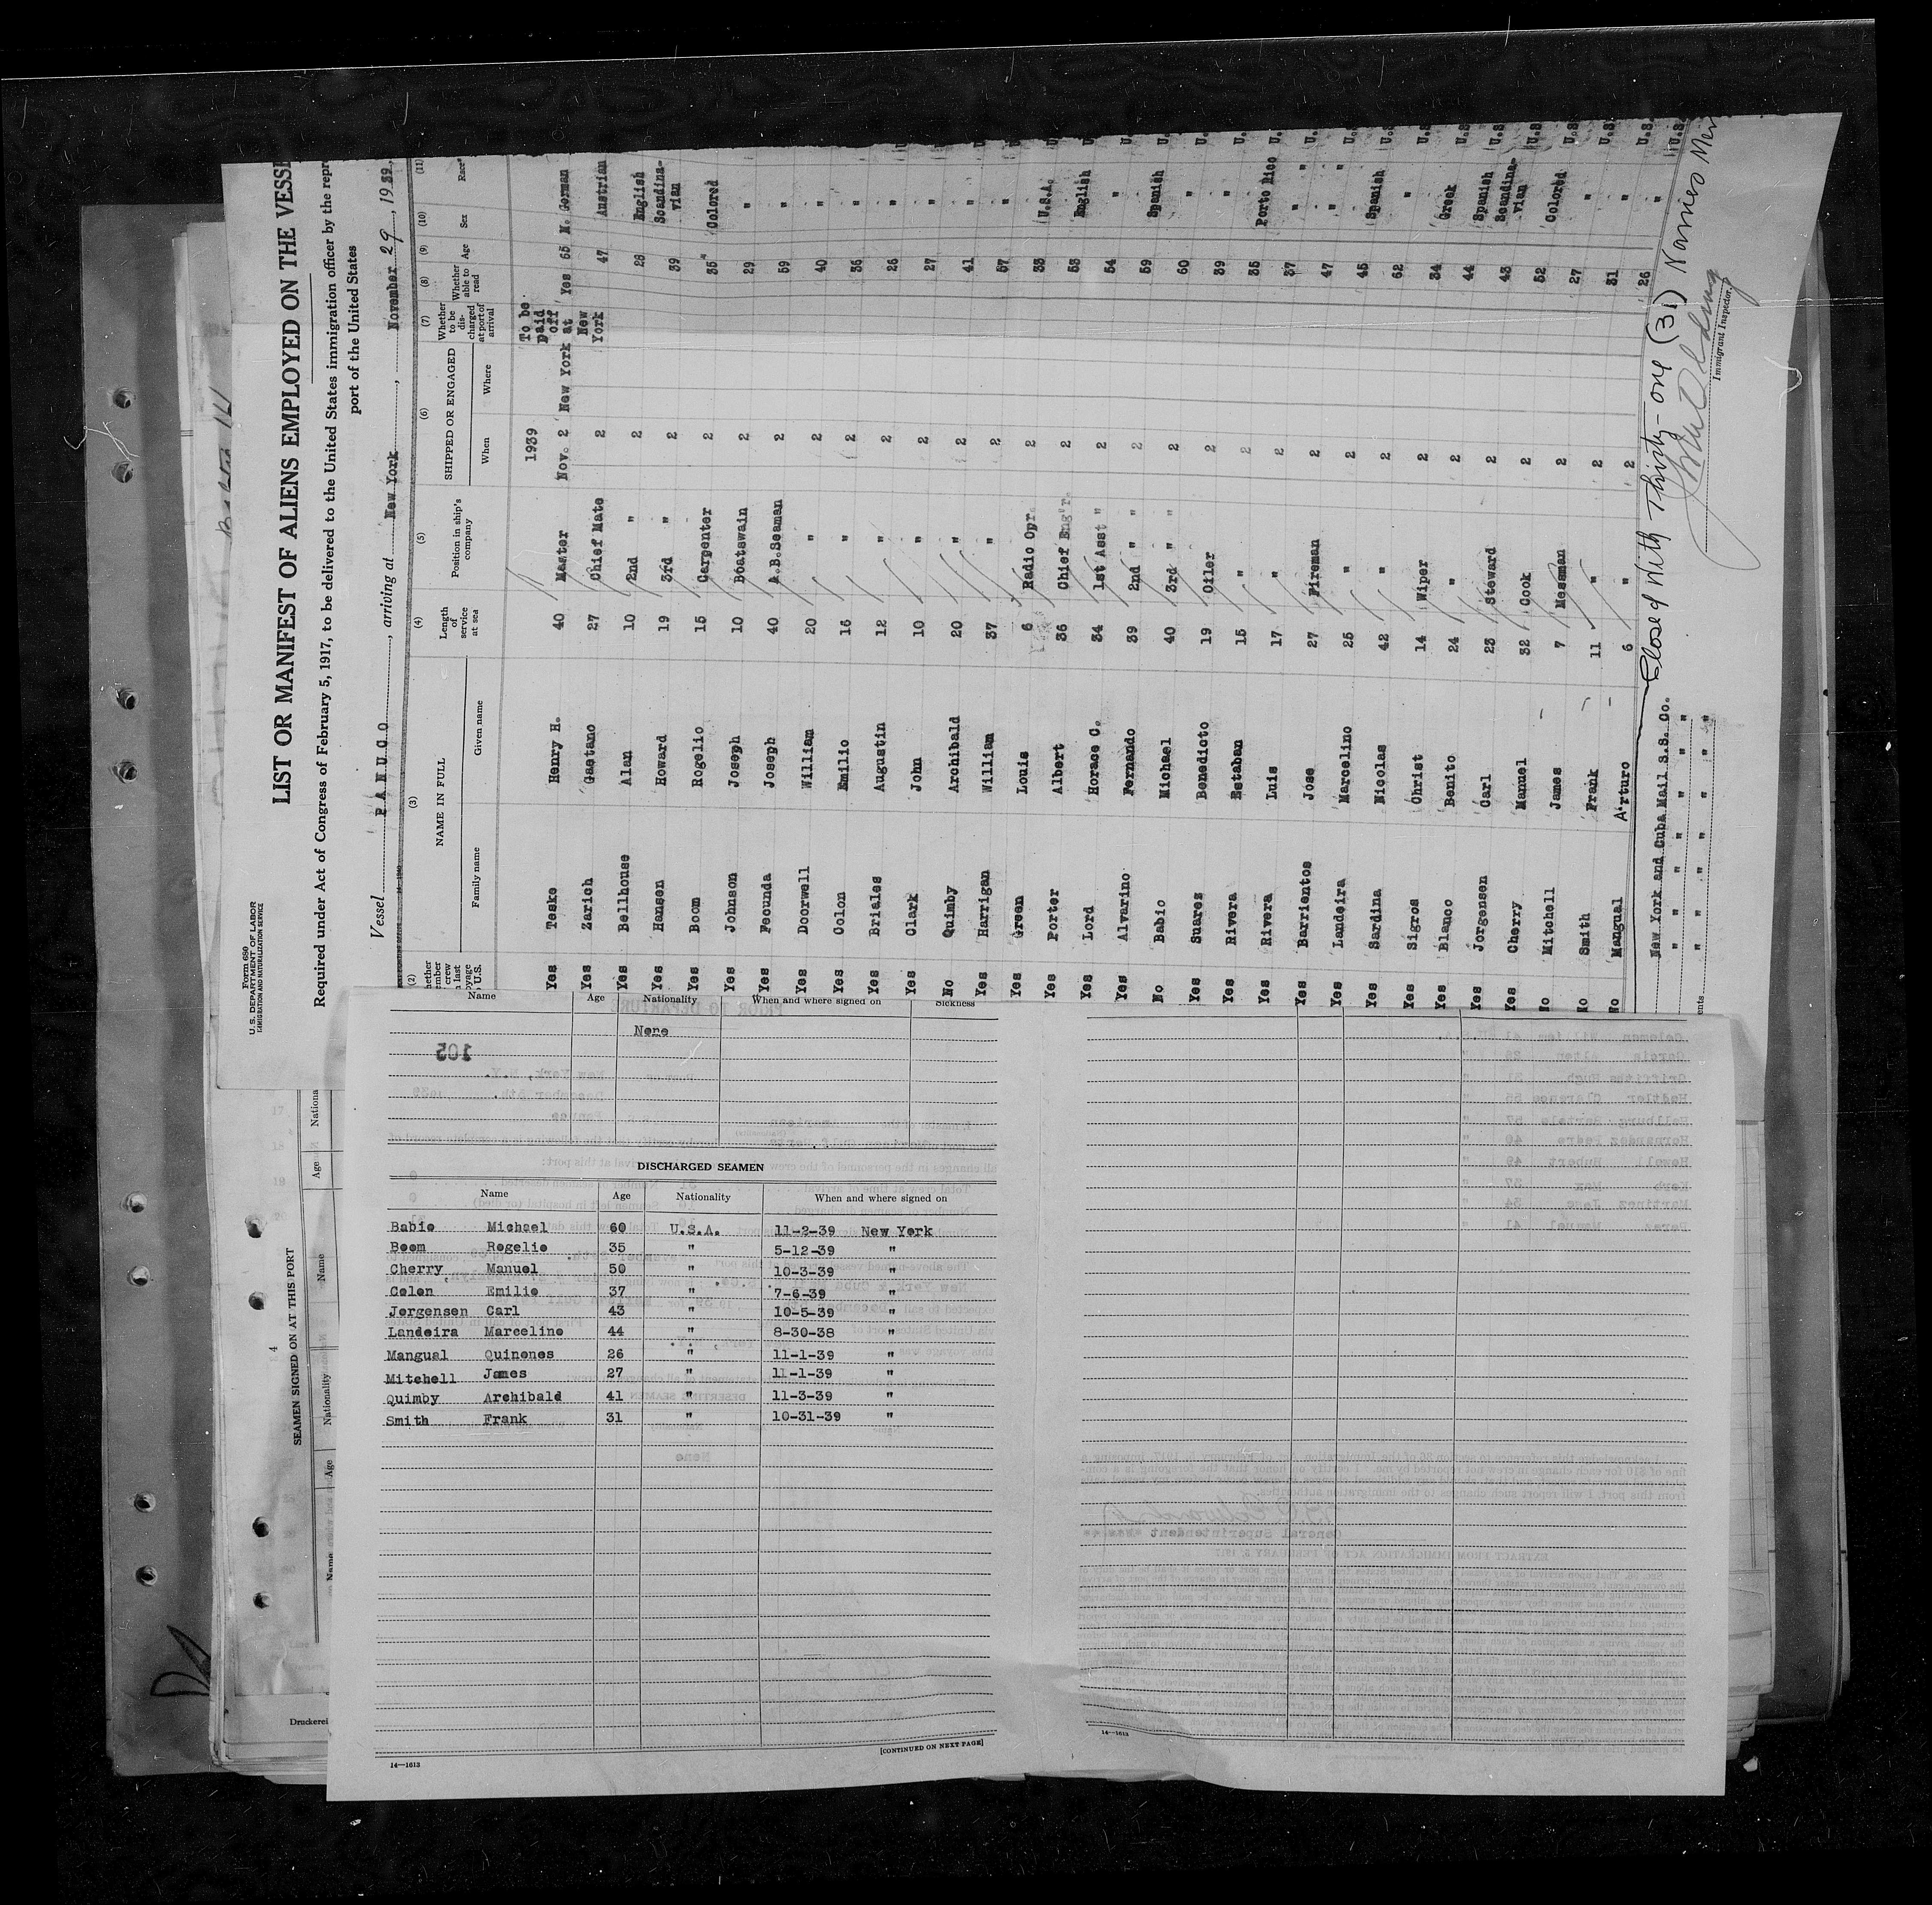 Form 689
U. S. DEPARTMENT OF LABOR
IMMIGRATION AND NATURALIZATION SERVICE
LIST OR MANIFEST OF ALIENS EMPLOYED ON THE VESSE
Required under Act of Congress of February 5, 1917, to be delivered to the United States immigration officer by the repr
port of the United States
Vessel P A N U C O, arriving at New York, November 29, 1939,
(2) (3) (4) (5) (6) (7) (8) (9) (10) (11)
NAME IN FULL Length of service at sea Position in ship's company SHIPPED OR ENGAGED Whether to be discharged at port of arrival Whether able to read Age Sex Race*
Family name Given name When Where
1939 To be Paid off at New York
Yes Teske Henry H. 40 Master Nov. 2 New York Yes 55 M. German
Yes Zarich Gaetano 27 Chief Mate 2 47 Austrian
Yes Bellhouse Alan 10 2nd " 2 28 English
Yes Hansen Howard 19 3rd " 2 39 Scandinavian
Yes Boom Rogelio 15 Carpenter 2 35 Colored
Yes Johnson Joseph 10 Boatswain 2 29 "
Yes Fecunda Joseph 40 A.B.Seaman 2 59 "
Yes Doorwell William 20 " 2 40 "
Yes Colon Emilio 16 " 2 36 "
Yes Briales Augustin 12 " 2 26 "
Yes Clark John 10 " 2 27 "
No Quimby Archibald 20 " 2 41 "
Yes Harrigan William 37 " 2 57 "
Yes Green Louis 6 Radio Opr. 2 33 U.S.A.
Yes Porter Albert 36 Chief Eng'r. 2 53 English
Yes Lord Horace C. 34 1st Asst " 2 54 "
Yes Alvarino Fernando 39 2nd " " 2 59 Spanish
No Babio Michael 40 3rd " " 2 60 "
Yes Suarez Benedicto 19 Oiler 2 39 "
Yes Rivera Estaban 15 " 2 35 Porto Rico
Yes Rivera Luis 17 " 2 37 "
Yes Barrientos Jose 27 Fireman 2 47 "
Yes Landeira Marcelino 25 " 2 45 "
Yes Sardina Nicolas 42 " 2 62 Spanish
Yes Sigros Christ 14 Wiper 2 34 "
Yes Blanco Benito 24 " 2 44 Greek
Yes Jorgensen Carl 23 Steward 2 43 Spanish
Yes Cherry Manuel 32 Cook 2 52 Scandinavian
No Mitchell James 7 Messman 2 27 Colored
No Smith Frank 11 " 2 31 "
No Mangual Arturo 6 " 2 26 "
Closed With Thirty-one (31) Names
New York and Cuba Mail S.S. Co.
Immigrant Inspector.
Name Age Nationality When and where signed on Sickness
None
105
DISCHARGED SEAMEN
Name Age Nationality When and where signed on
Babio Michael 60 U.S.A. 11-2-39 New York
Boom Rogelio 35 " 5-12-39 "
Cherry Manuel 50 " 10-3-39 "
Colon Emilio 37 " 7-6-39 "
Jorgensen Carl 43 " 10-5-39 "
Landeira Marcelino 44 " 8-30-38 "
Mangual Quinones 26 " 11-1-39 "
Mitchell James 27 " 11-1-39 "
Quimby Archibald 41 " 11-3-39 "
Smith Frank 31 " 10-31-39 "
[CONTINUED ON NEXT PAGE]
14—1613
14—1613
SEAMEN SIGNED ON AT THIS PORT
Name Age Nationality Name Age Nationa
Druckerei